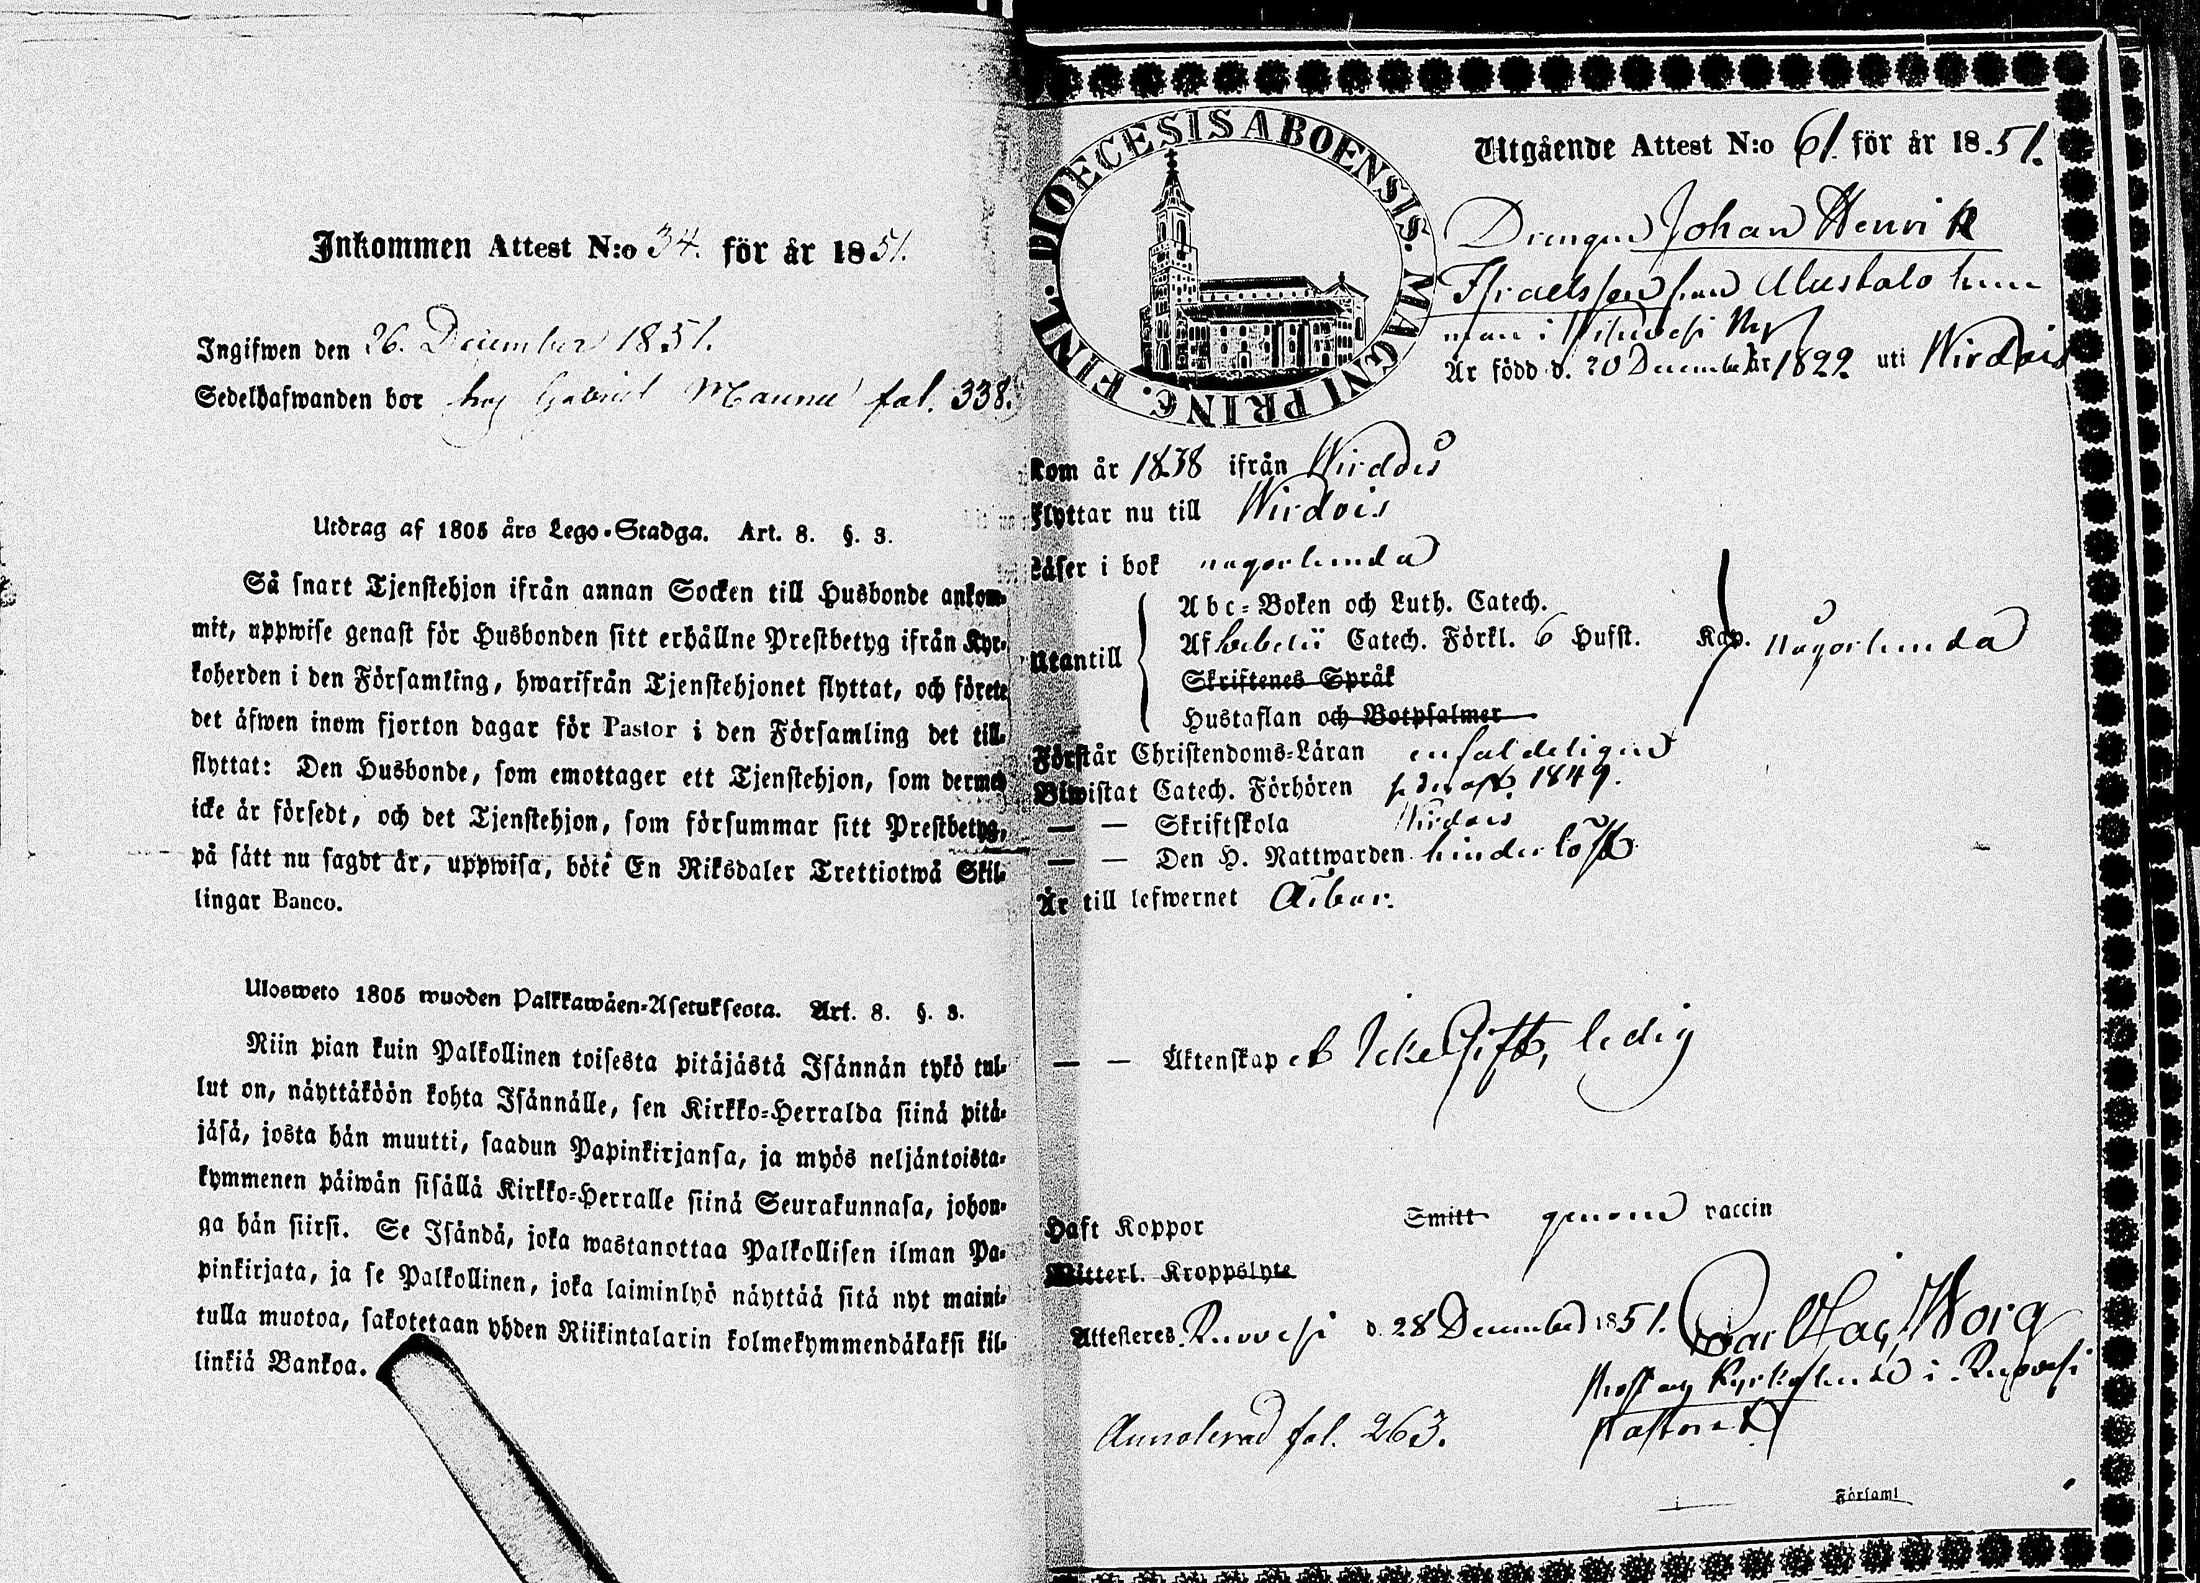 Inkommen Attest N:o 34. för år 1851.
Ingifwen den 26. December 1851.
Sedelhafwanden bor hos Gabriel Mannu fol. 338.
Utdrag af 1805 års Lego-Stadga. Art. 8. §. 3.
Så snart Tjenstehjon ifrån annan Socken till Husbonde ankom-
mit, uppwise genast för Husbonden sitt erhållne Prestbetyg ifrån Kyr-
koherden i den Församling, hwarifrån Tjenstehjonet flyttat, och förete
det äfwen inom fjorton dagar för Pastor i den Församling det till-
flyttat: Den Husbonde, som emottager ett Tjenstehjon, som dermed
icke är försedt, och det Tjenstehjon, som försummar sitt Prestbetyg,
på sätt nu sagdt är, uppwisa, böte En Riksdaler Trettiotwå Skil-
lingar Banco.
Ulosweto 1805 wuoden Palkkawäen-Asetuksesta. Art. 8. §. 3.
Niin pian kuin Palkollinen toisesta pitäjästä Isännän tykö tul-
lut on, näyttäköön kohta Isännälle, sen Kirkko-Herralda siinä pitä-
jäsä, josta hän muutti, saadun Papinkirjansa, ja myös neljäntoista-
kymmenen päiwän sisällä Kirkko-Herralle siinä Seurakunnasa, johon-
ga hän siirsi. Se Isändä, joka wastanottaa Palkollisen ilman Pa-
pinkirjata, ja se Palkollinen, joka laiminlyö näyttää sitä nyt maini-
tulla muotoa, sakotetaan yhden Riikintalarin kolmekymmendäkaksi kil-
linkiä Bankoa.
DIOECESIS ABOENSIS. MAGNI PRINC. FINL.
Utgående Attest N:o 61. för år 1851.
Drengen Johan Henrik
Israelsson från Mustalo hem
man i Wisuvesi By
Är född d. 20 December år 1822 uti Wirdois
Kom år 1838 ifrån Wirdois
Flyttar nu till Wirdois
Läser i bok någorlunda
Utantill
Abc-Boken och Luth. Catech.
Af Catech. Förkl. 6 Hufst. Kap. någorlunda
Skriftenes Språk
Hustaflan och Botpsalmer
Förstår Christendoms-Läran enfaldeligen
Biwistat Catech. Förhören 1849.
— — Skriftskola Wirdois
— — Den H. Nattwarden hinderlöst
Är till lefwernet ärbar.
— — Äktenskapet Icke Gift, ledig
Haft Koppor Smitt genom vaccin
Witterl. Kroppslyte
Attesteres Ruovesi d. 28 December 1851.
Prost och Kyrkoherde i Ruovesi
Pastorat
Annoterad fol. 263.
i Församl